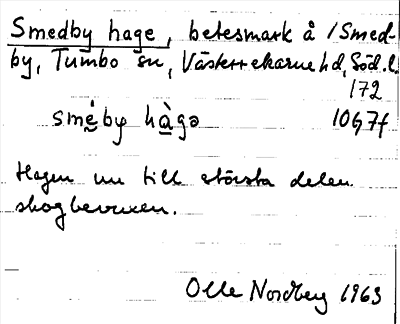 Smedby hage, betesmark å /Smed-
by, Tumbo sn, Västerrekarne hd, Söd. l.
172
smé̱by hà̱gə 10G7f
Hagen nu till största delen
skogbevuxen.
Olle Nordberg 1963